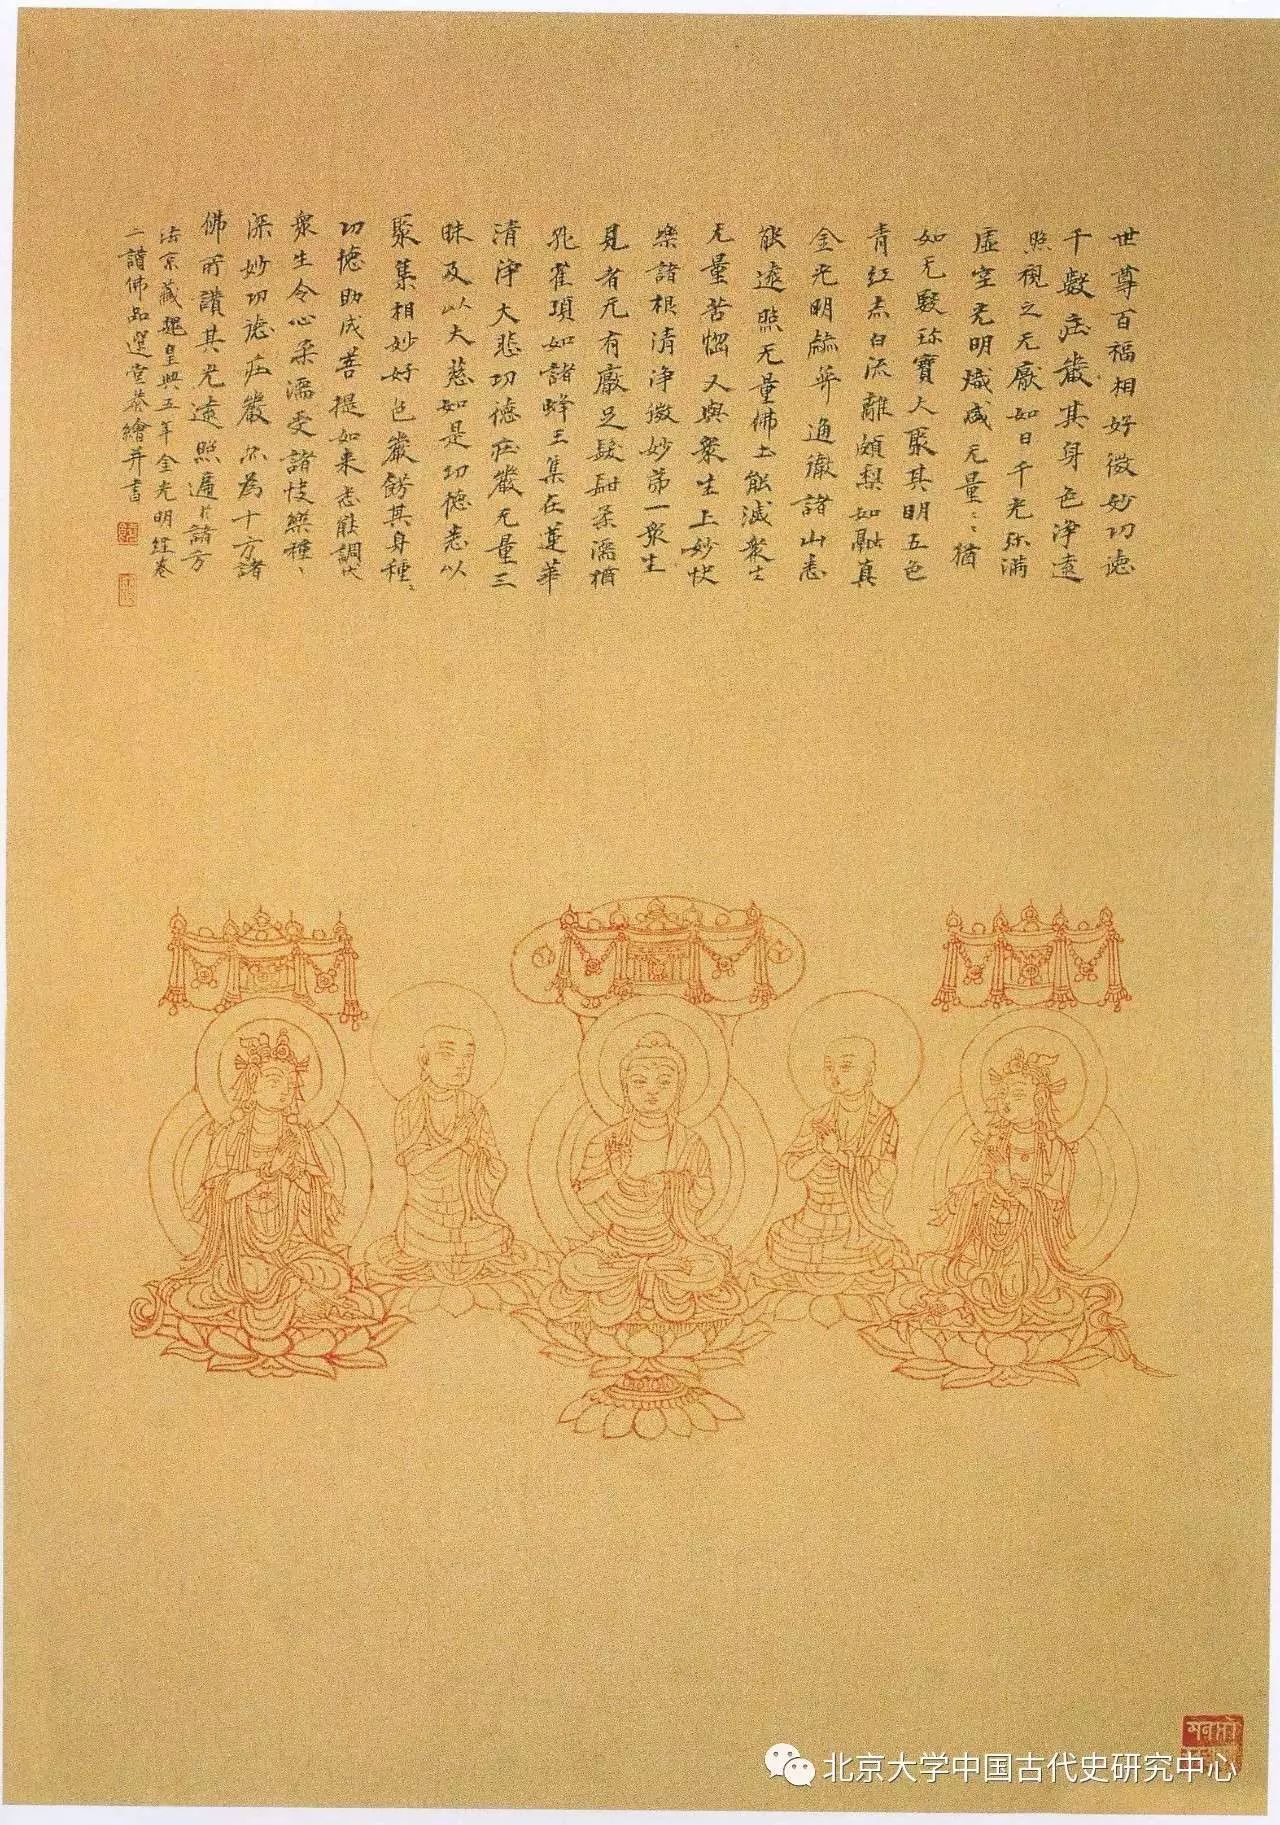 世尊百福相好微妙功德
千數庄嚴其身色淨遠
照視之无厭如日千光弥滿
虛空光明熾盛无量〻猶
如无數珎寶人聚其明五色
青紅赤白流離頗梨如融真
金光明赫弈通徹諸山悉
能遠照无量佛土能滅衆生
无量苦惱又與衆生上妙快
樂諸根清淨微妙第一衆生
見者无有厭足髮紺柔濡猶
孔雀項如諸蜂王集在蓮華
清淨大悲功德庄嚴无量三
昧及以大慈如是功德悉以
聚集相妙好色嚴餝其身種〻
功德助成菩提如来悉能調伏
衆生令心柔濡受諸快樂種〻
深妙功德庄嚴亦為十方諸
佛所讃其光遠照遍於諸方
法京藏魏皇興五年金光明經卷
二讃佛品選堂摹繪并書
北京大学中国古代史研究中心